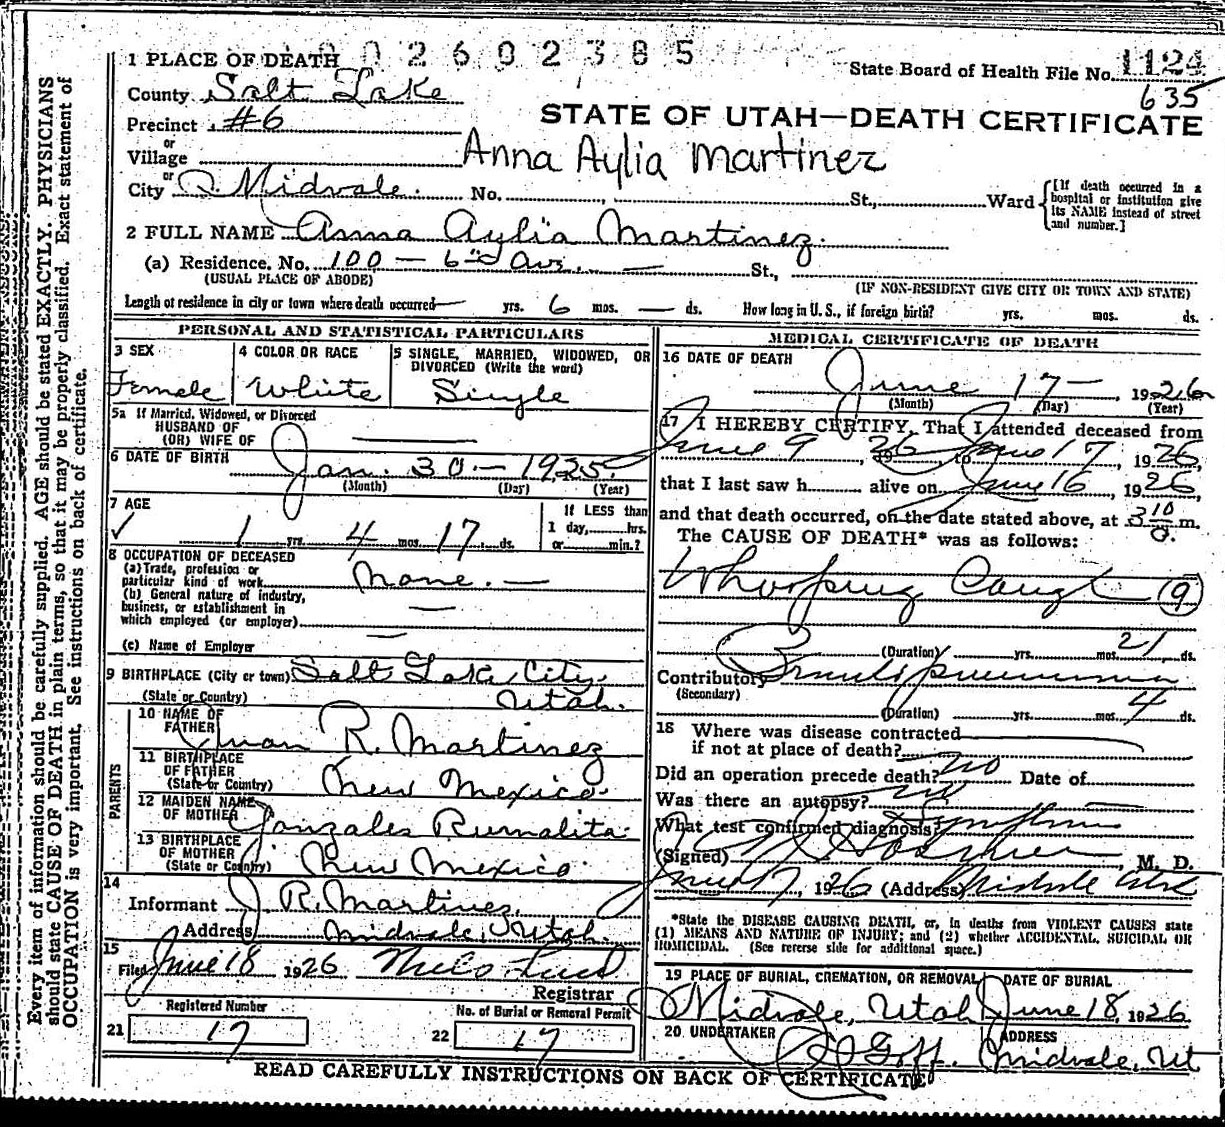 002602385
1 PLACE OF DEATH
State Board of Health File No. 1124
County Salt Lake
635
STATE OF UTAH—DEATH CERTIFICATE
Precinct #6
or
Village
Anna Aylia Martinez
or
City Midvale. No. St., Ward
[If death occurred in a
hospital or institution give
its NAME instead of street
and number.]
2 FULL NAME Anna Aylia Martinez.
(a) Residence. No. 100 — 6 Ave. — St.,
(USUAL PLACE OF ABODE)
(IF NON-RESIDENT GIVE CITY OR TOWN AND STATE)
Length of residence in city or town where death occurred — yrs. 6 mos. — ds. How long in U. S., if foreign birth? yrs. mos. ds.
PERSONAL AND STATISTICAL PARTICULARS
3 SEX
Female
4 COLOR OR RACE
White
5 SINGLE, MARRIED, WIDOWED, OR
DIVORCED (Write the word)
Single
5a If Married, Widowed, or Divorced
HUSBAND OF
(OR) WIFE OF
6 DATE OF BIRTH Jan. 30 — 1925
(Month) (Day) (Year)
7 AGE
1 yrs. 4 mos. 17 ds.
If LESS than
1 day, hrs.
or min.?
8 OCCUPATION OF DECEASED
(a) Trade, profession or
particular kind of work None. —
(b) General nature of industry,
business, or establishment in
which employed (or employer) —
(c) Name of Employer —
9 BIRTHPLACE (City or town) Salt Lake City,
(State or Country) Utah.
PARENTS
10 NAME OF
FATHER Juan R. Martinez
11 BIRTHPLACE
OF FATHER
(State or Country) New Mexico.
12 MAIDEN NAME
OF MOTHER Gonzales Rumalita
13 BIRTHPLACE
OF MOTHER
(State or Country) New Mexico
14
Informant J R. Martinez.
Address Midvale, Utah.
15
Filed June 18 1926
Registrar
Registered Number
21 17
No. of Burial or Removal Permit
22 17
MEDICAL CERTIFICATE OF DEATH
16 DATE OF DEATH
June 17 — 1926
(Month) (Day) (Year)
17 I HEREBY CERTIFY, That I attended deceased from
June 9, 26 to June 17, 1926,
that I last saw h alive on June 16, 1926,
and that death occurred, on the date stated above, at 3 10 a. m.
The CAUSE OF DEATH* was as follows:
Whooping Cough (9)
(Duration) yrs. mos. 21 ds.
Contributory
(Secondary)
(Duration) yrs. mos. 4 ds.
18 Where was disease contracted
if not at place of death?
Did an operation precede death? no Date of
Was there an autopsy? no
What test confirmed diagnosis? Symptoms
(Signed) M. D.
June 17, 1926 (Address) Midvale Utah
*State the DISEASE CAUSING DEATH, or, in deaths from VIOLENT CAUSES state
(1) MEANS AND NATURE OF INJURY; and (2) whether ACCIDENTAL, SUICIDAL OR
HOMICIDAL. (See reverse side for additional space.)
19 PLACE OF BURIAL, CREMATION, OR REMOVAL
Midvale, Utah
DATE OF BURIAL
June 18, 1926.
20 UNDERTAKER
Goff.
ADDRESS
Midvale, Ut
READ CAREFULLY INSTRUCTIONS ON BACK OF CERTIFICATE
Every item of information should be carefully supplied. AGE should be stated EXACTLY. PHYSICIANS
should state CAUSE OF DEATH in plain terms, so that it may be properly classified. Exact statement of
OCCUPATION is very important. See instructions on back of certificate.